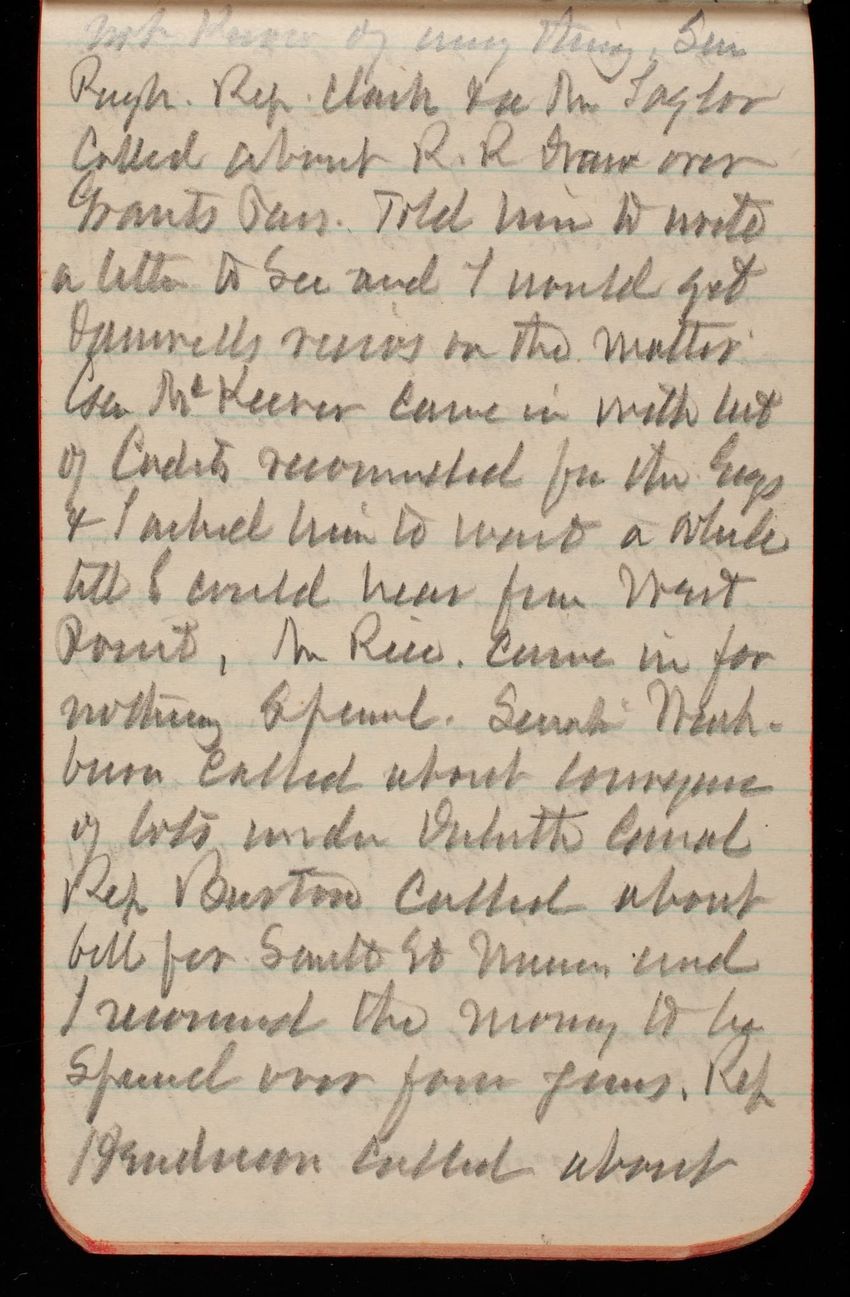 not know of any thing, Sen
Pugh. Rep. Clark & a Mr Taylor
Called about R. R draw over
Grants Pass. Told him to write
a letter to Sec and I would get
views on the matter
Gen McKeever came in with list
of Cadets recommended for the Engs
& I asked him to wait a while
till I could hear from West
Point, Mr Rice. came in for
nothing Special. Senator Wash-
burn called about conveyance
of lots under Duluth Canal
Rep Burton called about
bill for Sault St Marie and
I recommend the money to be
Spend over four years. Rep
Henderson called about